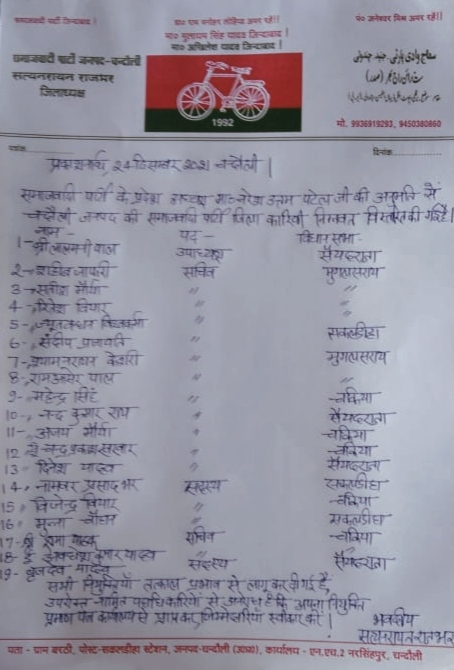 समाजवादी पार्टी जिन्दाबाद!
डा० राम मनोहर लोहिया अमर रहें!!
पं० जनेश्वर मिश्र अमर रहें!!
मा० मुलायम सिंह यादव जिन्दाबाद!
मा० अखिलेश यादव जिन्दाबाद!
समाजवादी पार्टी जनपद-चन्दौली
सत्यनरायन राजभर
जिलाध्यक्ष
1992
मो. 9936919293, 9450380860
पत्रांक
दिनांक
प्रकाशनार्थ, 24 दिसम्बर 2021 चन्दौली।
समाजवादी पार्टी के प्रदेश अध्यक्ष मा० नरेश उत्तम पटेल जी की अनुमति से
चन्दौली जनपद की समाजवादी पार्टी जिला कारिणी निम्नवत विस्तारित की गई है।
नाम - पद - विधान सभा -
1- श्री लालमनी पाल उपाध्यक्ष सैयदराजा
2- सचिव मुगलसराय
3- सतीश मौर्या " "
4- " "
5- " सकलडीहा
6- संदीप प्रजापति " मुगलसराय
7- श्यामनरायन केशरी "
8- रामअवेर पाल " "
9- महेन्द्र सिंह " चकिया
10- नन्द कुमार राय " सैयदराजा
11- अजय मौर्या " चकिया
12 चन्द्रप्रकाश " चकिया
13- दिनेश यादव " सैयदराजा
14- नामवर प्रसाद भर सदस्य सकलडीहा
15- विजेन्द्र " चकिया
16- मुन्ना चौहान " सकलडीहा
17- यादव सचिव चकिया
18- कुमार यादव
19- बृजदेव यादव सदस्य सैयदराजा
सभी नियुक्तियां तत्काल प्रभाव से लागू कर दी गई है,
उपरोक्त नामित पदाधिकारियों से अनुरोध है कि अपना नियुक्ति
प्रमाण पत्र कार्यालय से प्राप्त कर जिम्मेदारियां स्वीकार करें।
भवदीय
सत्यनरायन राजभर
पता - ग्राम बरठी, पोस्ट-सकलडीहा स्टेशन, जनपद-चन्दौली (उ०प्र०), कार्यालय - एन.एच.2 नरसिंहपुर, चन्दौली